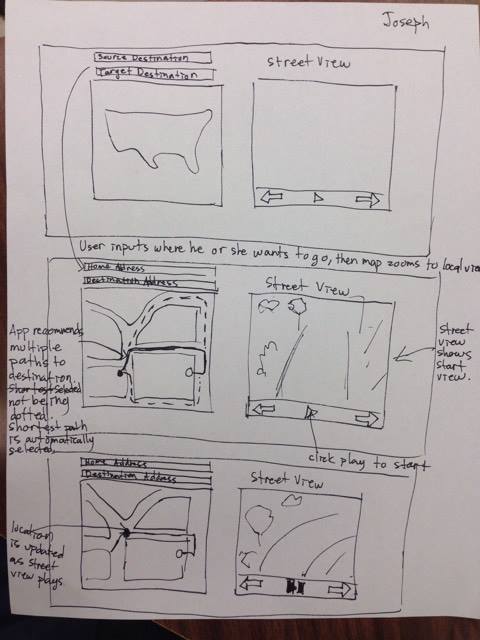 Joseph
Source Destination
Target Destination
Street View
User inputs where he or she wants to go, then map zooms to local view
Home Address
Destination Address
Street View
App recommends
multiple
paths to
destination.
Shortest Selected
not being
dotted.
Shortest path
is automatically
selected.
Street
view
shows
start
view.
click play to start
Home Address
Destination Address
Street View
location
is updated
as street
view plays.